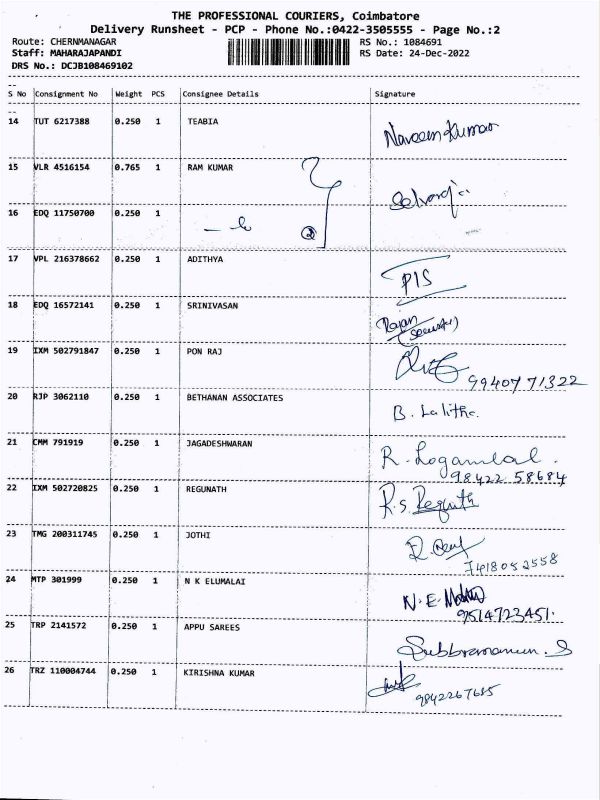 THE PROFESSIONAL COURIERS, Coimbatore
Delivery Runsheet - PCP - Phone No.:0422-3505555 - Page No.:2
Route: CHERNMANAGAR RS No.: 1084691
Staff: MAHARAJAPANDI RS Date: 24-Dec-2022
DRS No.: DCJB108469102
S No Consignment No Weight PCS Consignee Details Signature
14 TUT 6217388 0.250 1 TEABIA Naveen Kumar
15 VLR 4516154 0.765 1 RAM KUMAR
16 EDQ 11750700 0.250 1
17 VPL 216378662 0.250 1 ADITHYA
18 EDQ 16572141 0.250 1 SRINIVASAN Rajan
19 IXM 502791847 0.250 1 PON RAJ
9940771322
20 RJP 3062110 0.250 1 BETHANAN ASSOCIATES B. Lalitha.
21 CMM 791919 0.250 1 JAGADESHWARAN R. Logambal.
98422 58684
22 IXM 502720825 0.250 1 REGUNATH R.S. Regunath
23 TMG 200311745 0.250 1 JOTHI
7418052558
24 MTP 301999 0.250 1 N K ELUMALAI N. E.
9514723451.
25 TRP 2141572 0.250 1 APPU SAREES
26 TRZ 110004744 0.250 1 KIRISHNA KUMAR
9842267615